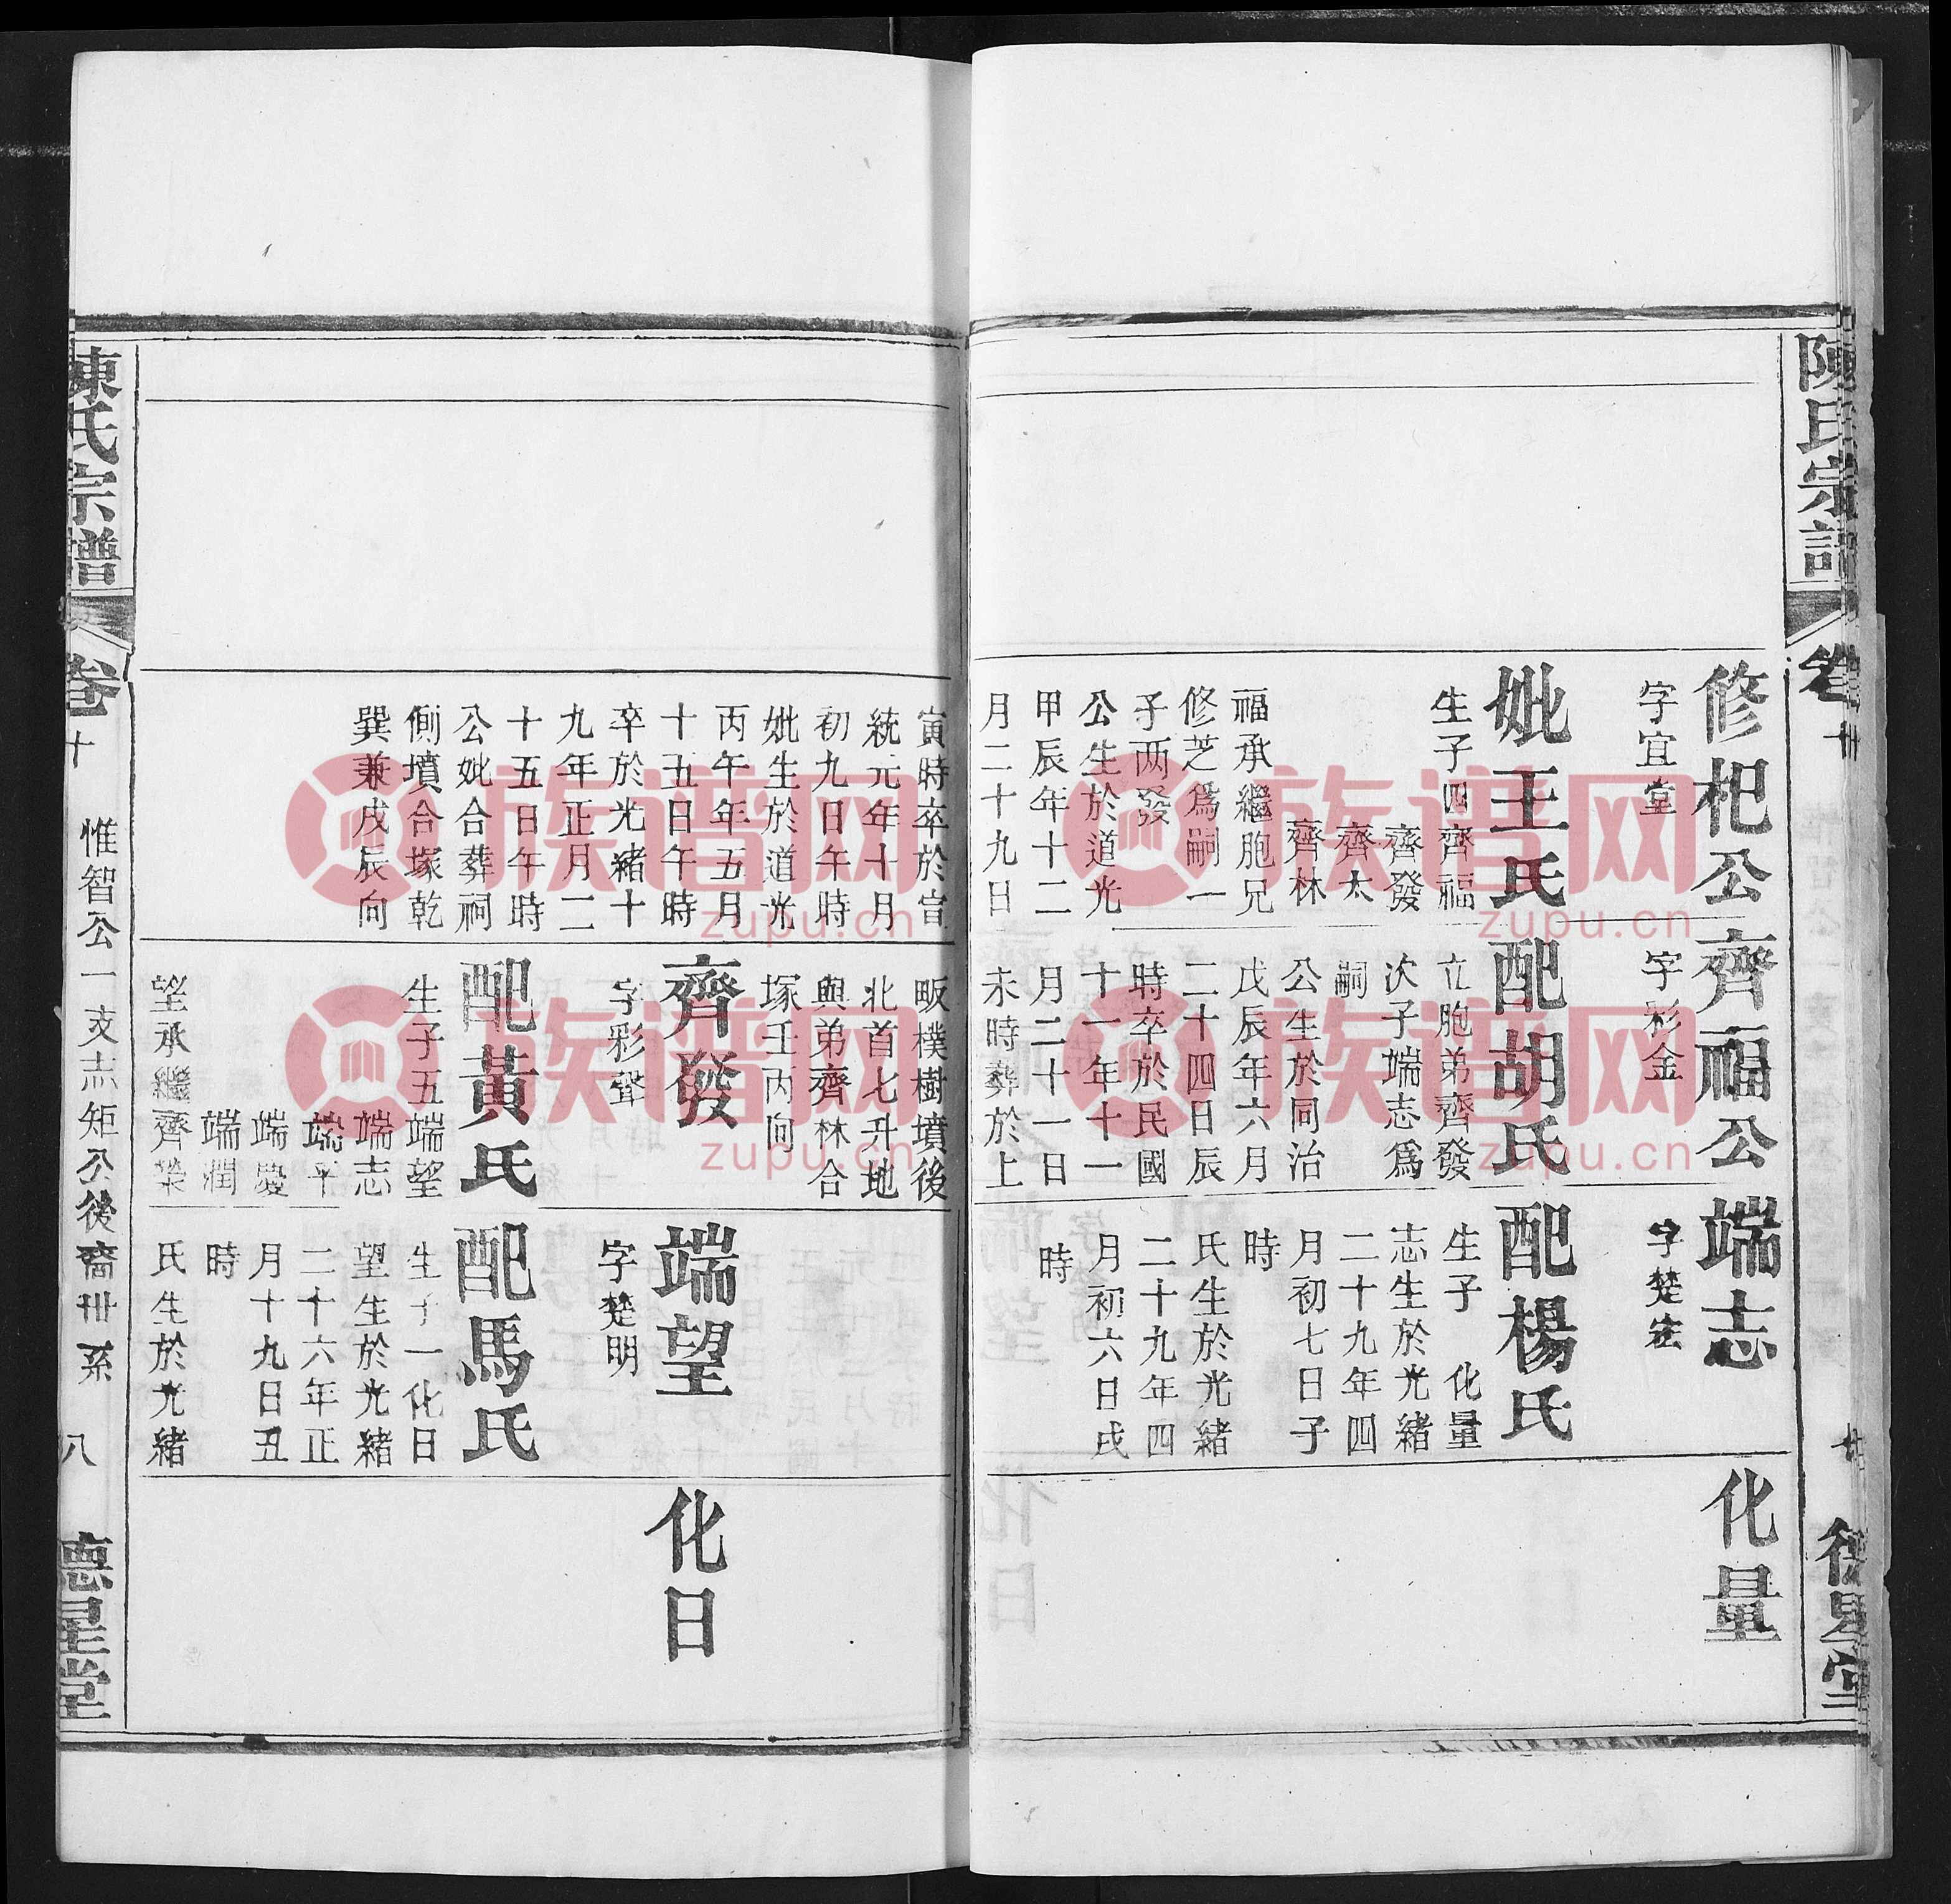 陳氏宗譜
卷十
德星堂
修杞公
字宜堂
妣王氏
生子四齊福
齊發
齊太
齊林
福承繼胞兄
修芝爲嗣一
子两發
公生於道光
甲辰年十二
月二十九日
寅時卒於宣
統元年十月
初九日午時
妣生於道光
丙午年五月
十五日午時
卒於光緒十
九年正月二
十五日午時
公妣合葬祠
側墳合塚乾
巽兼戌辰向
齊福公
字彩金
配胡氏
立胞弟齊發
次子端志爲
嗣
公生於同治
戊辰年六月
二十四日辰
時卒於民國
十一年十一
月二十一日
未時葬於上
畈樸樹墳後
北首七升地
與弟齊林合
塚壬丙向
齊發
字彩聲
配黃氏
生子五端望
端志
端平
端慶
端潤
望承繼齊榮
端志
字楚宏
配楊氏
生子 化量
志生於光緒
二十九年四
月初七日子
時
氏生於光緒
二十九年四
月初六日戌
時
端望
字楚明
配馬氏
生子一化日
望生於光緒
二十六年正
月十九日丑
時
氏生於光緒
化量
化日
陳氏宗譜
卷十
惟智公一支志矩公後裔卅一系
八
德星堂
族谱网
zupu.cn
族谱网
zupu.cn
族谱网
zupu.cn
族谱网
zupu.cn